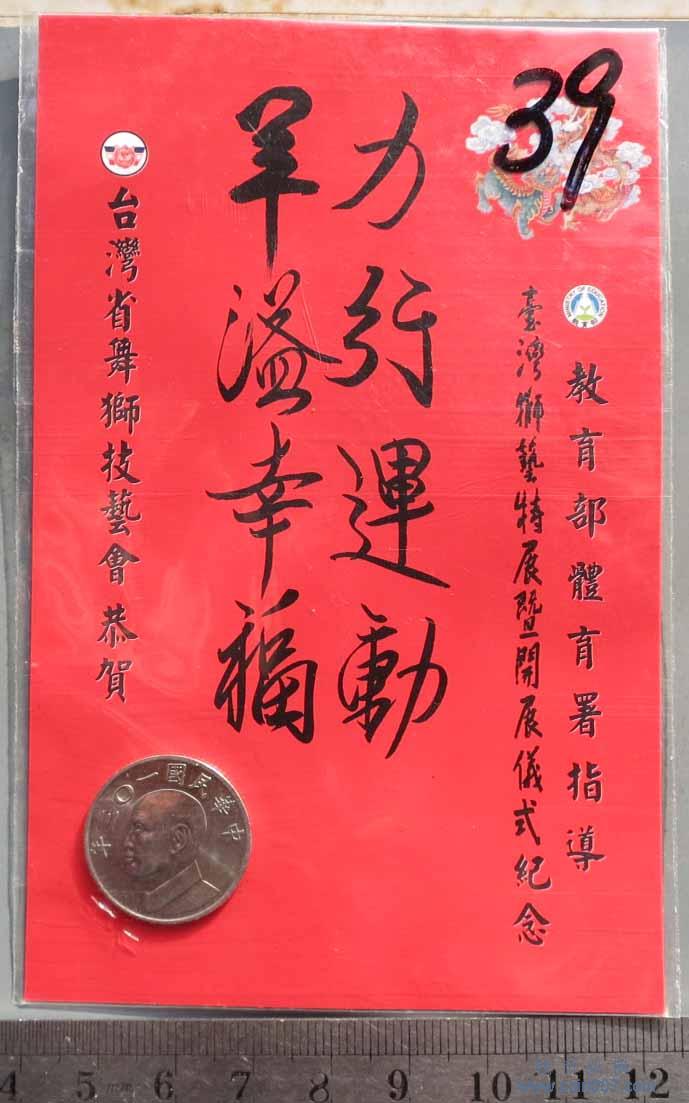 39
MINISTRY OF EDUCATION
教育部
教育部體育署指導
臺灣獅藝特展暨開展儀式紀念
力行運動
羊溢幸福
台灣省舞獅技藝會 恭賀
中華民國一〇三年
4 5 mm 6 7 8 9 10 11 12